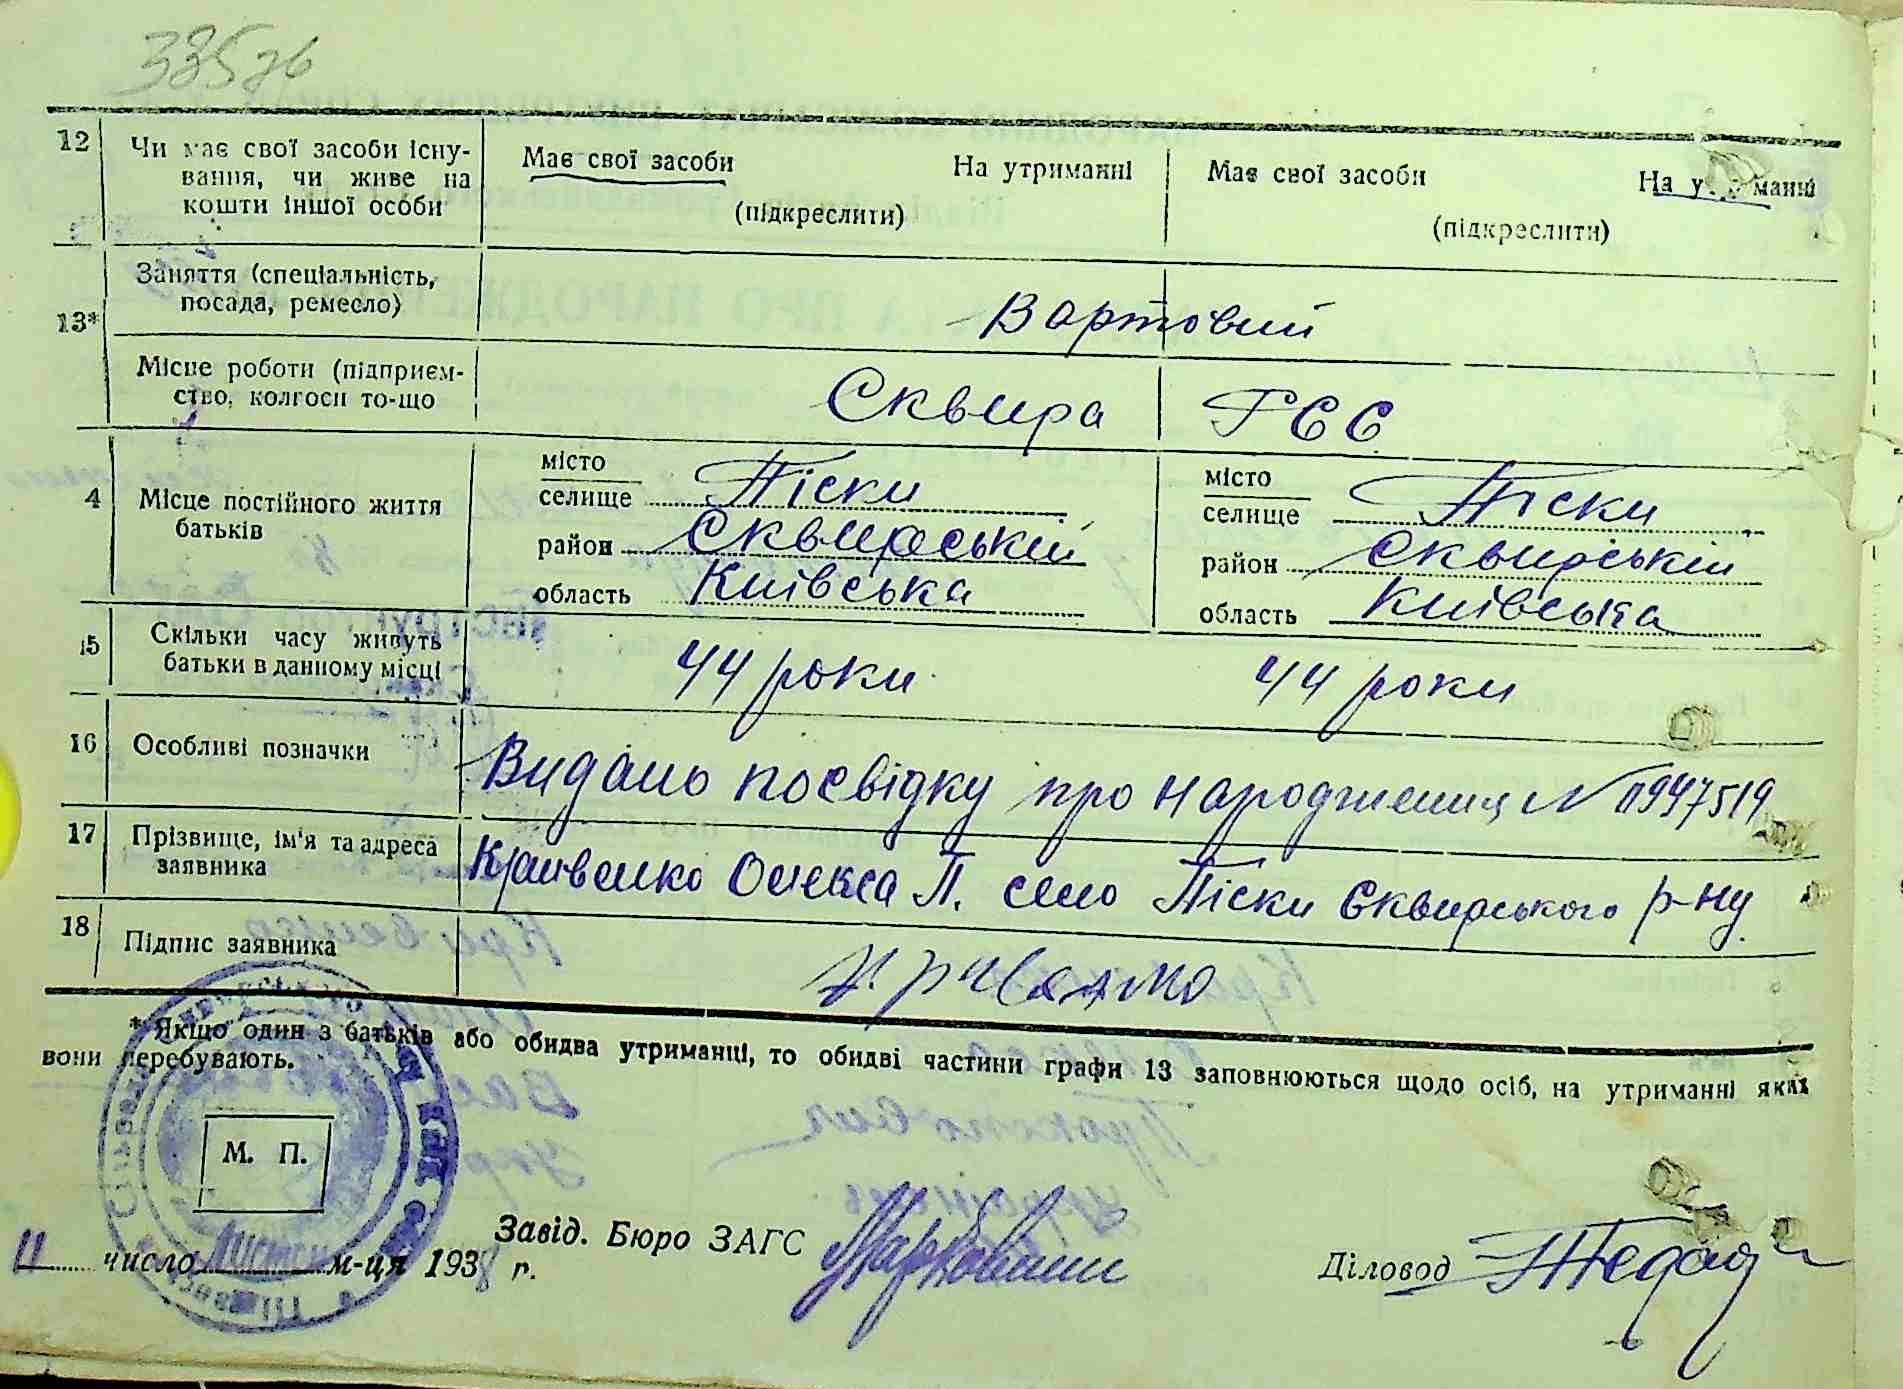 12 Чи має свої засоби існу- Має свої засоби На утриманні Має свої засоби На утриманні
вання, чи живе на
кошти іншої особи (підкреслити) (підкреслити)
Заняття (спеціальність,
посада, ремесло) Вартовий
13*
Місце роботи (підприєм- Сквира ГЄЄ
ство, колгосп то-що
місто місто
4 Місце постійного життя селище Піски селище Піски
батьків район Сквирський район Сквирській
область Київська область Київська
15 Скільки часу живуть 44 роки 44 роки
батьки в данному місці
16 Особливі позначки Видано посвідку про народження № 11947519
17 Прізвище, ім'я та адреса Кривенко Олекса П. село Піски Сквирського р-ну
заявника
18 Підпис заявника
* Якщо один з батьків або обидва утриманці, то обидві частини графи 13 заповнюються щодо осіб, на утриманні яких
вони перебувають.
М. П.
Завід. Бюро ЗАГС
11 число м-ця 1938 р. Діловод